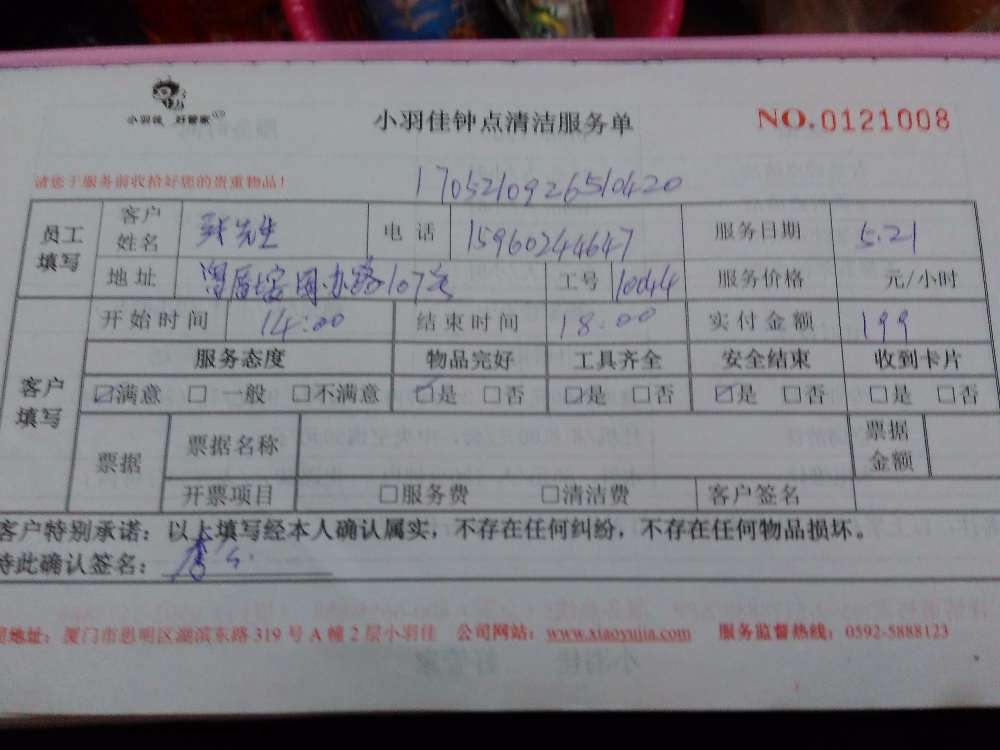 小羽佳 好管家
小羽佳钟点清洁服务单
NO.0121008
请您于服务前收拾好您的贵重物品!
1705210926510420
员工填写 客户姓名 先生 电话 15960244647 服务日期 5.21
地址 路107号 工号 10044 服务价格 元/小时
客户填写 开始时间 14:00 结束时间 18:00 实付金额 199
服务态度 物品完好 工具齐全 安全结束 收到卡片
☑满意 □一般 □不满意 ☑是 □否 ☑是 □否 ☑是 □否 □是 □否
票据 票据名称 票据金额
开票项目 □服务费 □清洁费 客户签名
客户特别承诺：以上填写经本人确认属实，不存在任何纠纷，不存在任何物品损坏。
特此确认签名：
地址：厦门市思明区湖滨东路 319 号 A 幢 2 层小羽佳 公司网站：www.xiaoyujia.com 服务监督热线：0592-5888123